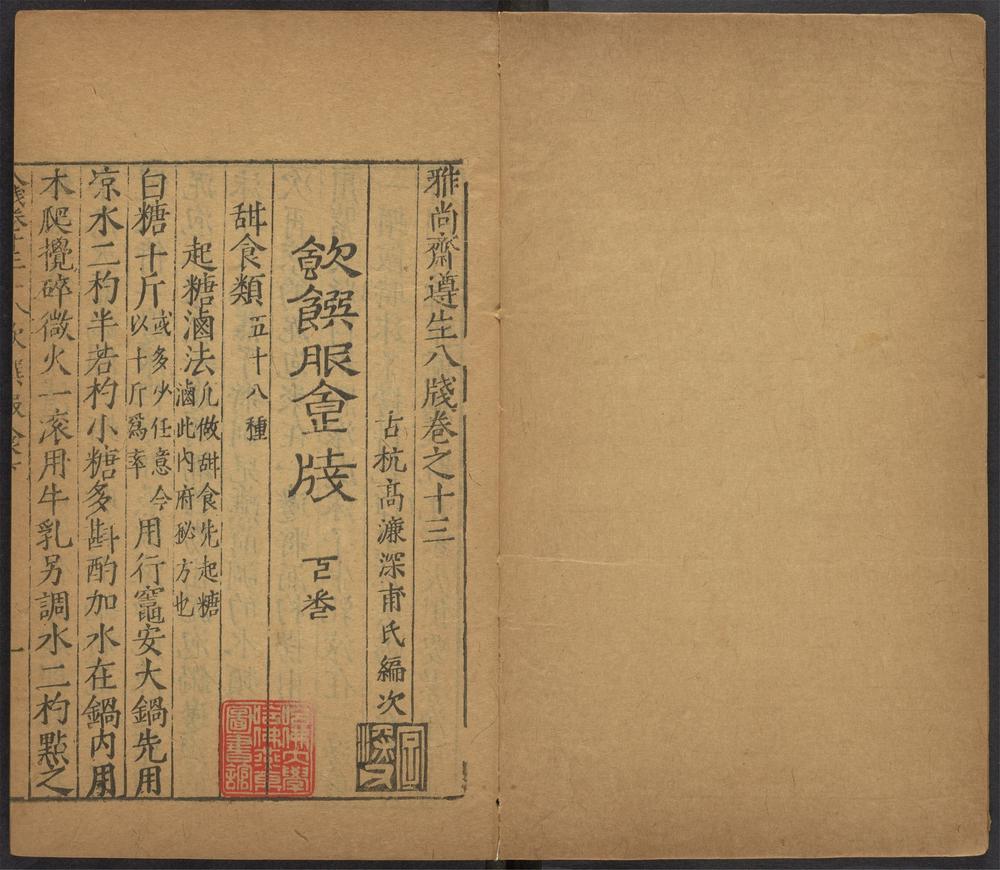 雅尚齋遵生八牋卷之十三
古杭高濂深甫氏編次
飲饌服食牋 下卷
甜食類五十八種
起糖滷法凡做甜食先起糖滷此内府祕方也
白糖十斤或多少任意今以十斤爲率用行竈安大鍋先用
凉水二杓半若杓小糖多斟酌加水在鍋内用
木爬攪碎微火一滚用牛乳另調水二杓點之
哈佛大學哈佛燕京圖書館